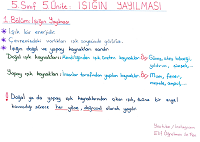 5. Sınıf 5. Ünite: IŞIĞIN YAYILMASI
1. Bölüm: Işığın Yayılması
* Işık bir enerjidir.
* Çevremizdeki varlıkları ışık sayesinde görürüz.
* Işığın doğal ve yapay kaynakları vardır.
Doğal ışık kaynakları: Kendiliğinden ışık üreten kaynaklar Ör/ Güneş, ateş böceği, yıldırım, şimşek...
Yapay ışık kaynakları: İnsanlar tarafından yapılan kaynaklar Ör/ Mum, fener, meşale, ampul...
! Doğal ya da yapay ışık kaynaklarından çıkan ışık, önüne bir engel
konmadığı sürece her yöne, doğrusal olarak yayılır.